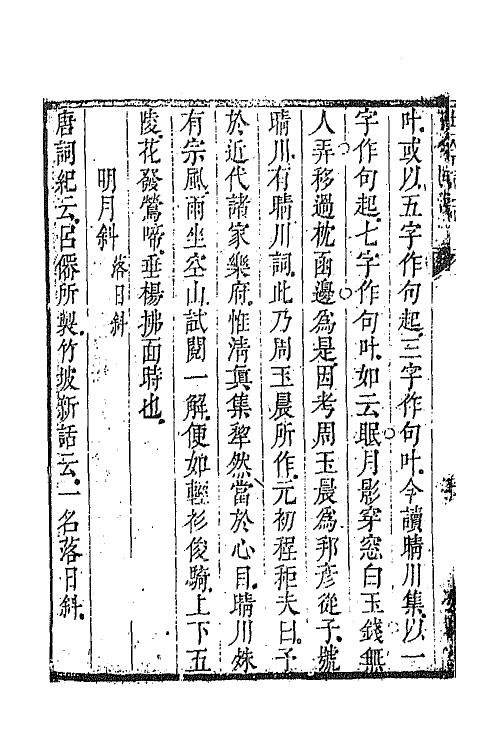 叶或以五字作句起三字作句叶今讀晴川集以一
字作句起七字作句叶如云眠月影穿窓白玉錢無
人弄移過枕函邊為是因考周玉晨為邦彥從子號
晴川有晴川詞此乃周玉晨所作元初程秬夫曰予
於近代諸家樂府惟清真集犂然當於心目晴川殊
有宗風雨坐空山試閱一解便如輕衫俊騎上下五
陵花發鶯啼垂楊拂面時也
明月斜 落日斜
唐詞紀云呂僊所製竹坡新話云一名落日斜